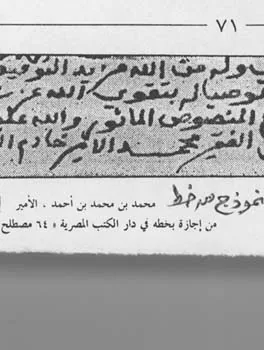 ٧١
له من الله مزيد التوفيق
توصيا له بتقوي الله عز
المنصوص المأثور والله على
الفقير محمد الأمير خادم ال
نموذج من خط
محمد بن محمد بن أحمد ، الأمير
من إجازة بخطه في دار الكتب المصرية « ٦٤ مصطلح